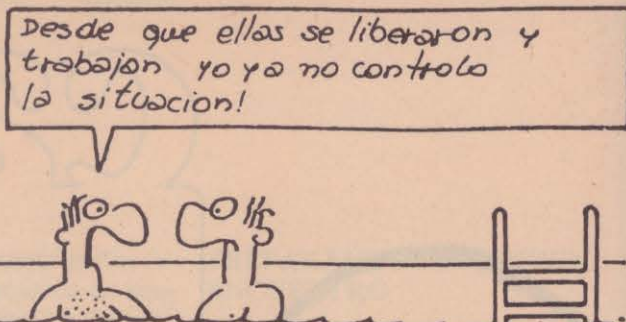 Desde que ellas se liberaron y
trabajan yo ya no controlo
la situacion!